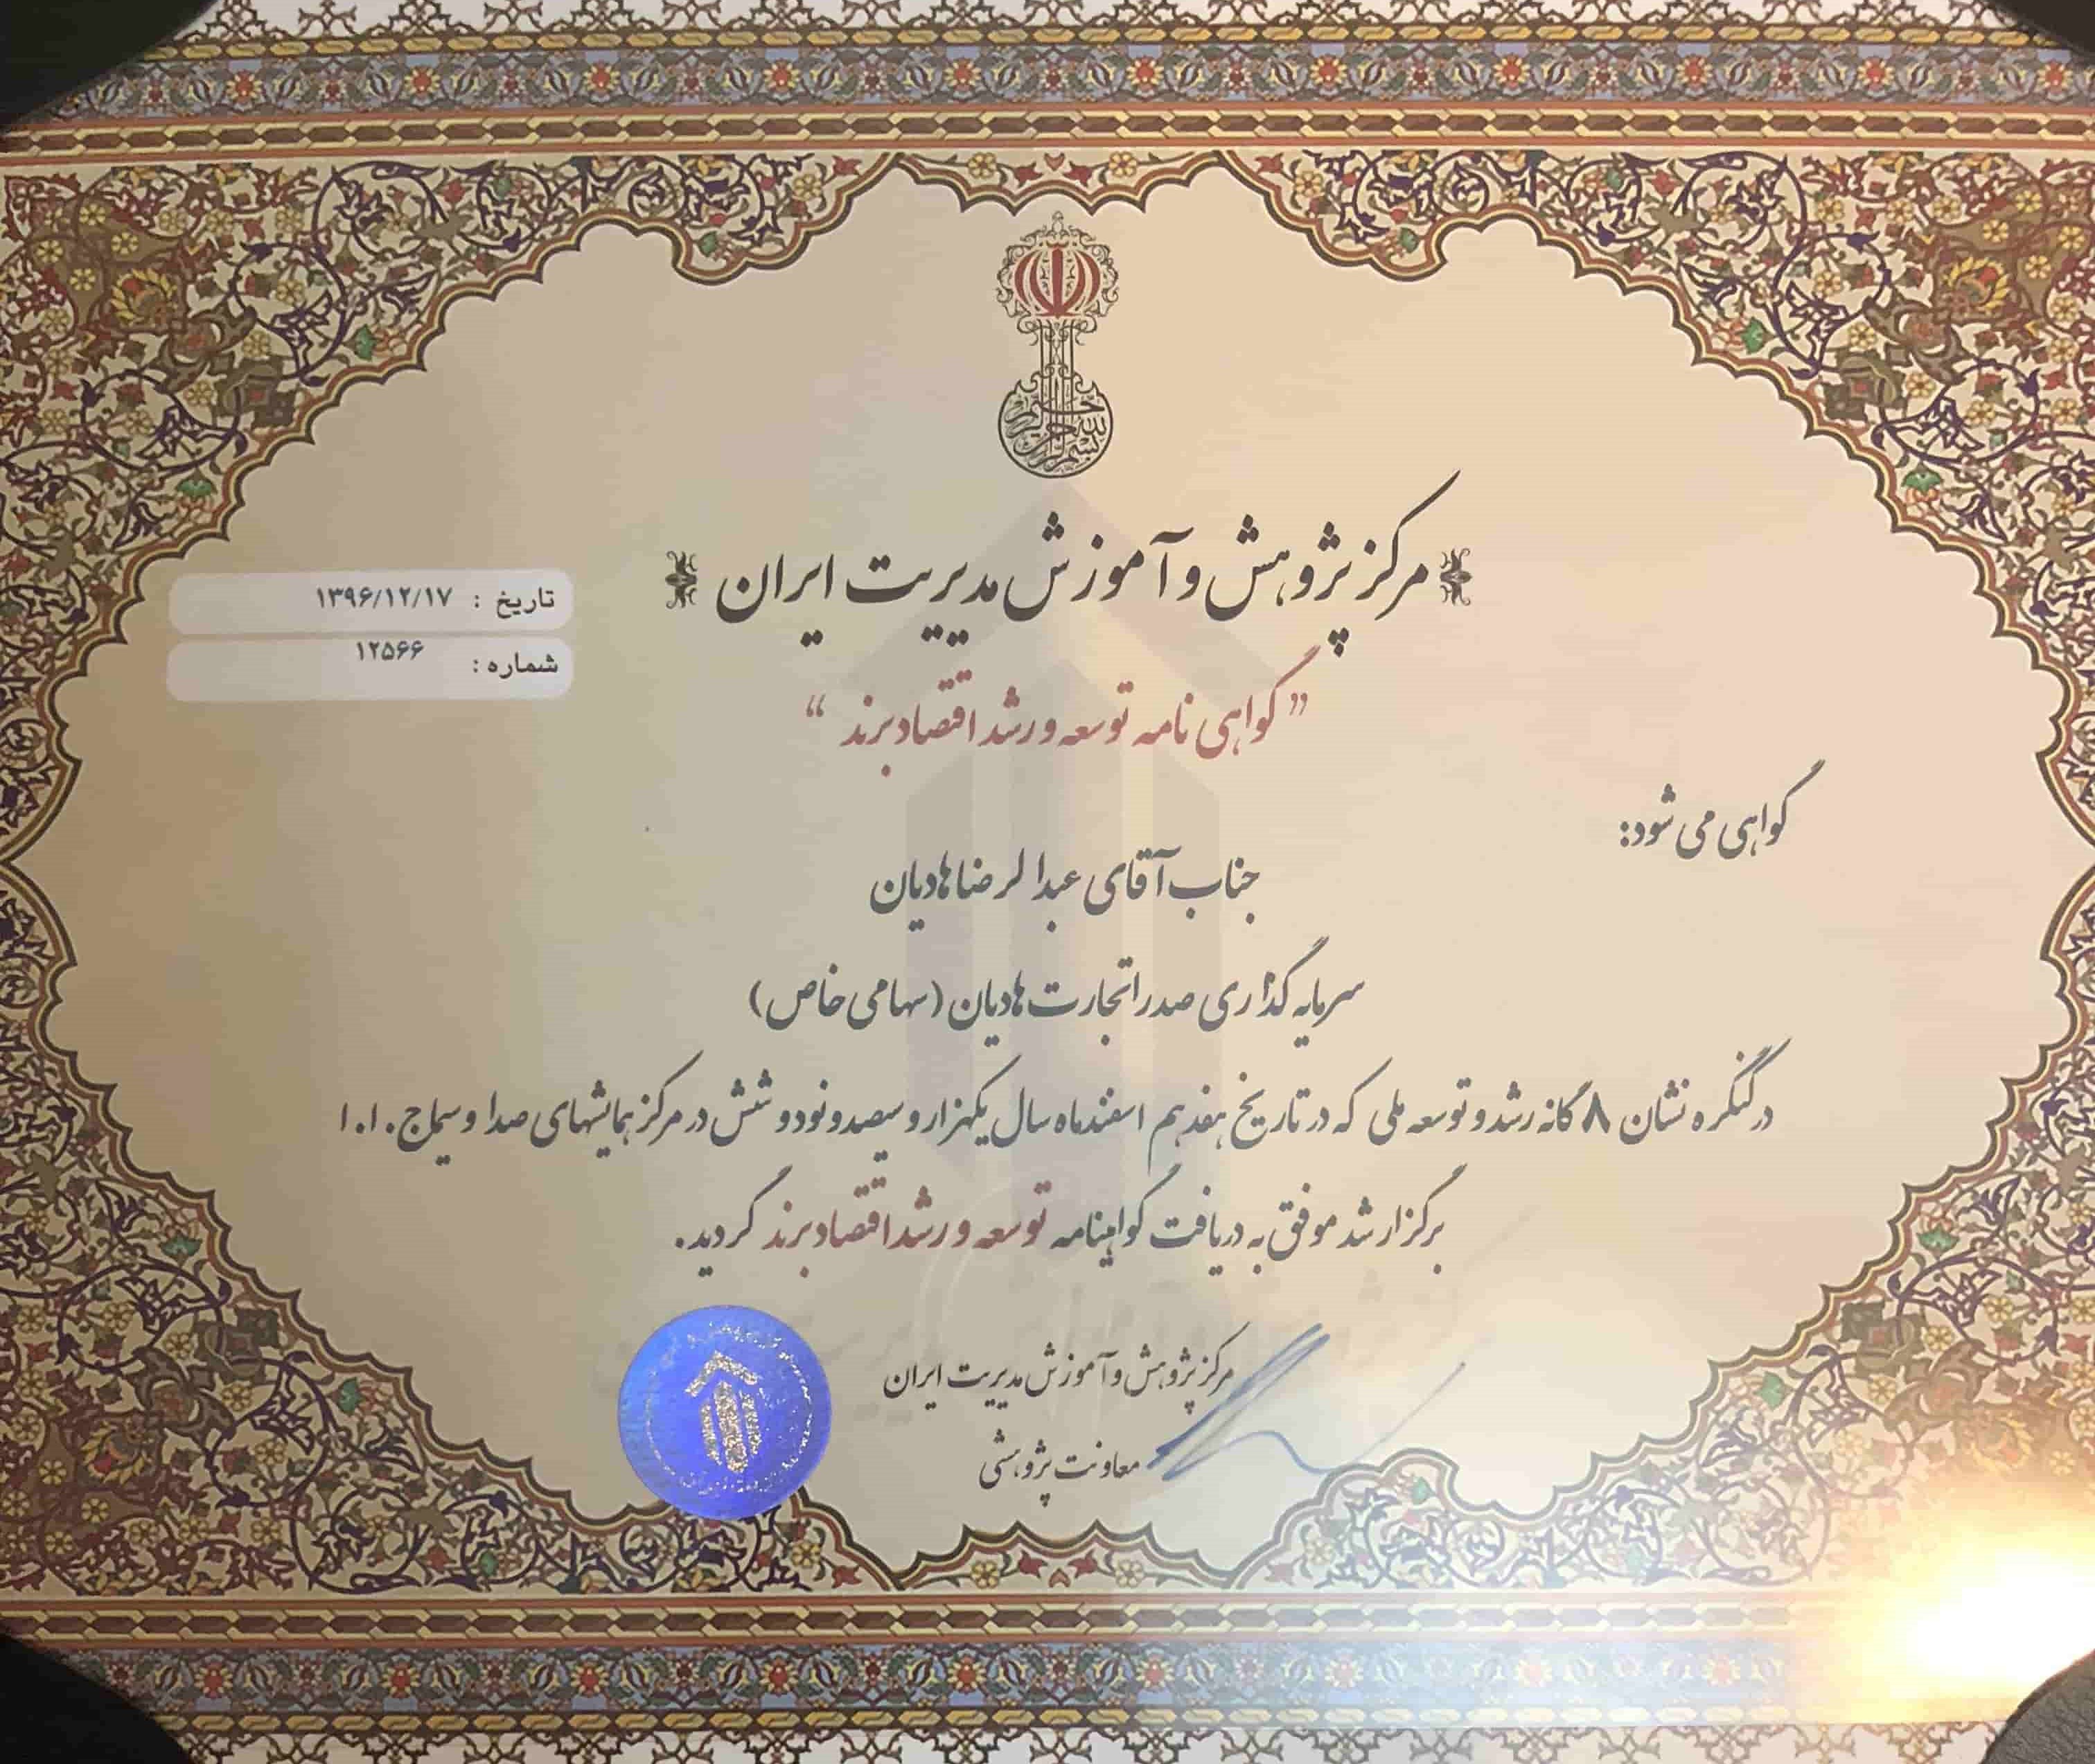 بسم الله الرحمن الرحیم
مرکز پژوهش و آموزش مدیریت ایران
تاریخ : ۱۳۹۶/۱۲/۱۷
شماره : ۱۲۵۶۶
” گواهی نامه توسعه و رشد اقتصاد برند “
گواهی می شود:
جناب آقای عبدالرضا هادیان
سرمایه گذاری صدرا تجارت هادیان (سهامی خاص)
در کنگره نشان ۸ گانه رشد و توسعه ملی که در تاریخ هفدهم اسفندماه سال یکهزار و سیصد و نود و شش در مرکز همایشهای صدا و سیما ج.ا.ا
برگزار شد موفق به دریافت گواهینامه توسعه و رشد اقتصاد برند گردید.
مرکز پژوهش و آموزش مدیریت ایران
معاونت پژوهشی